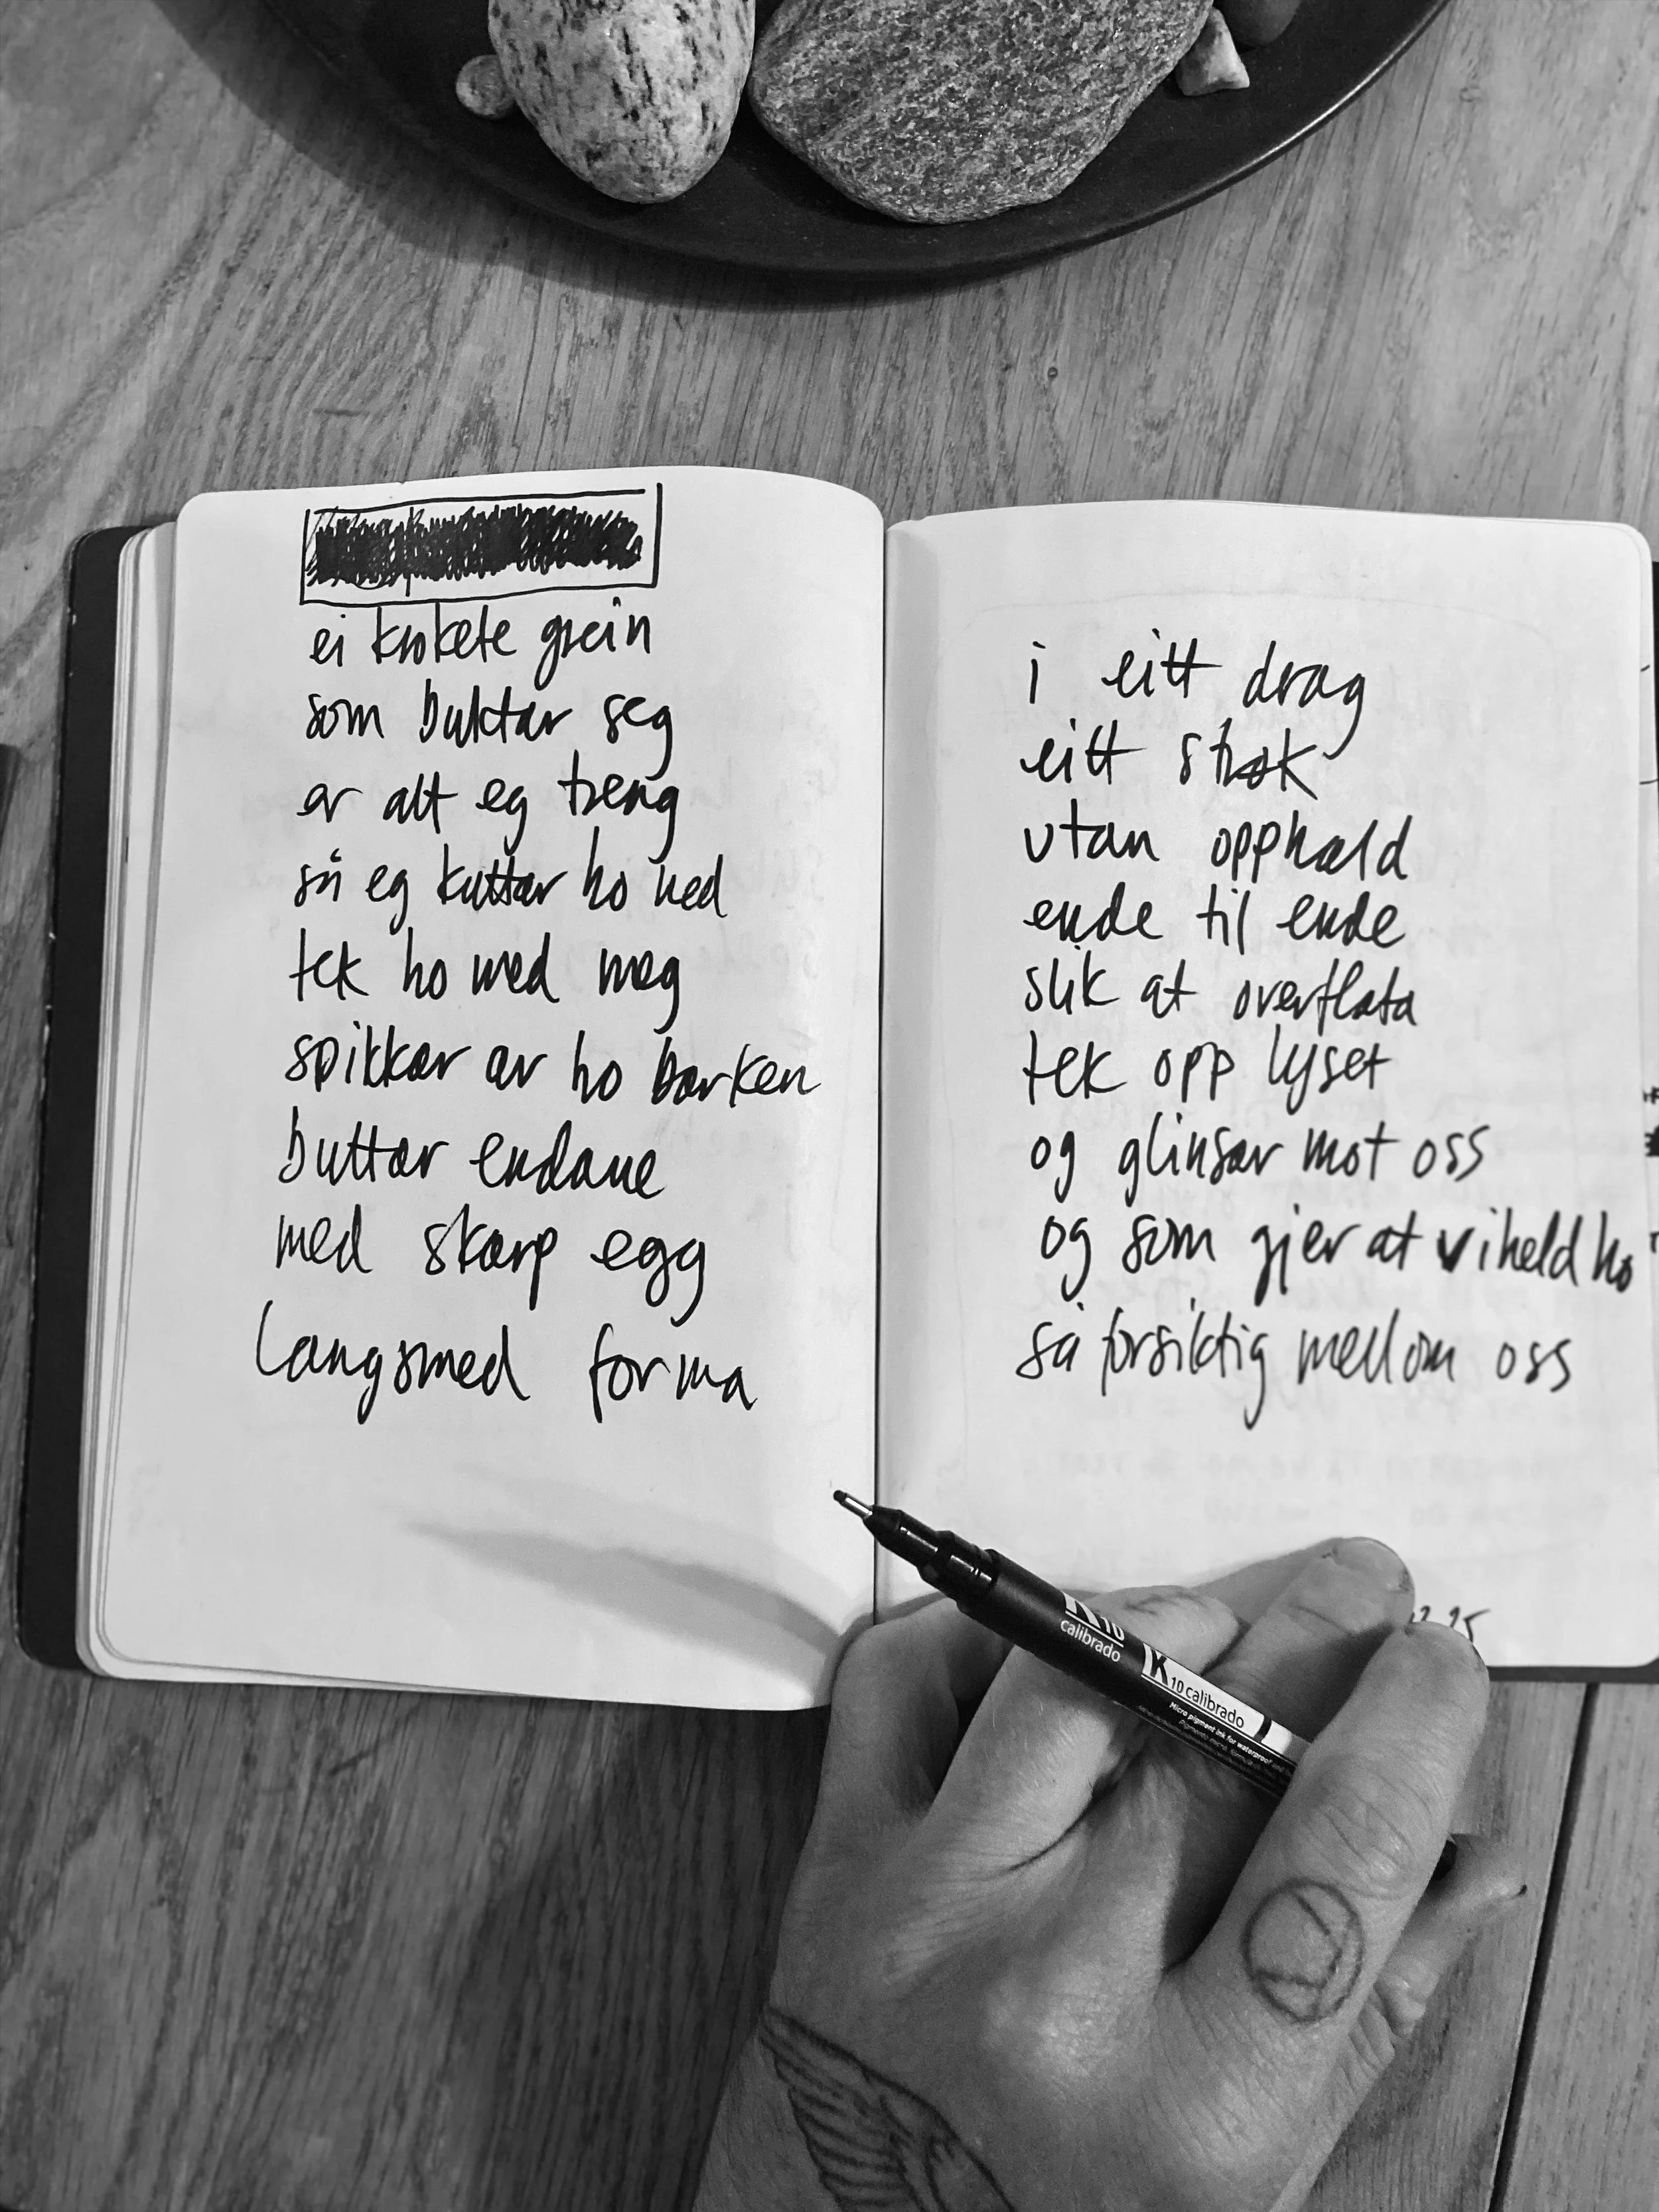 ei krokete grein
som buktar seg
er alt eg treng
så eg kuttar ho ned
tek ho med meg
spikkar av ho barken
buttar endane
med skarp egg
langsmed forma
i eitt drag
eitt strøk
utan opphald
ende til ende
slik at overflata
tek opp lyset
og glinsar mot oss
og som gjer at vi held ho
så forsiktig mellom oss
calibrado
K 10 calibrado
Micro pigment ink for waterproof and